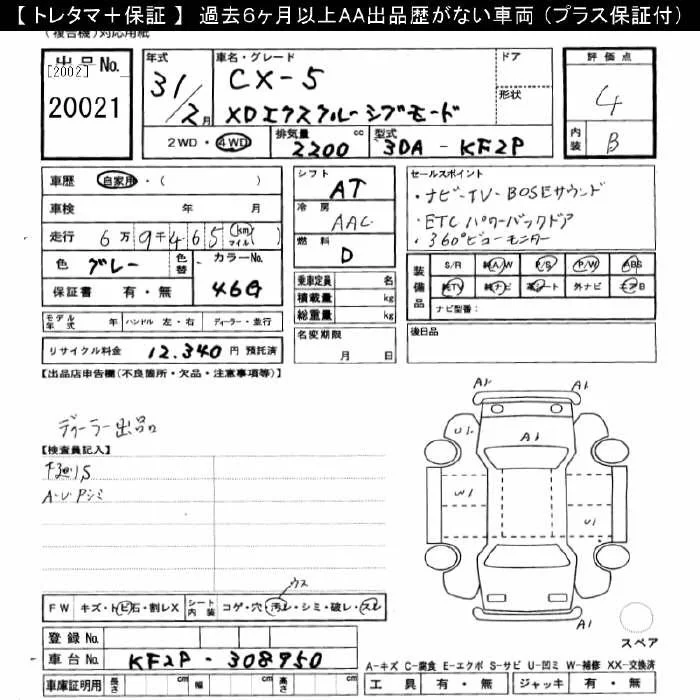 【トレタマ＋保証】 過去6ヶ月以上AA出品歴がない車両（プラス保証付）
(複合機)対応用紙
出品No.
[2002]
20021
年式
31/2月
車名・グレード
CX-5
XDエクスクルーシブモード
ドア
形状
評価点
4
内装 B
2WD・4WD
排気量 cc
2200
型式
3DA-KF2P
車歴 自家用・( )
車検 年 月
走行 6万9千465 (km マイル)( )
色 グレー
色替
カラーNo. 46G
保証書 有・無
シフト
AT
冷房
AAC
燃料
D
乗車定員 名
積載量 kg
総重量 kg
名変期限
月 日
セールスポイント
・ナビ・TV・BOSEサウンド
・ETC パワーバックドア
・360°ビューモニター
装備品
S/R 純A/W P/S P/W ABS
純TV 純ナビ 革シート 外ナビ エアB
ナビ型番：
後日品
モデル年式 年
ハンドル 左・右
ディーラー・並行
リサイクル料金 12,340 円 預託済
【出品店申告欄(不良箇所・欠品・注意事項等)】
ディーラー出品
【検査員記入】
A・U・Pシミ
A1 A1
U1 A1
W1 U1
A1
スペア
ウス
FW キズ・トビ石・割レX
シート内装 コゲ・穴・汚レ・シミ・破レ・スレ
登録No.
車台No. KF2P-308950
車庫証明用 長さ cm 幅 cm 高さ cm
A-キズ C-腐食 E-エクボ S-サビ U-凹ミ W-補修 XX-交換済
工具 有・無 ジャッキ 有・無